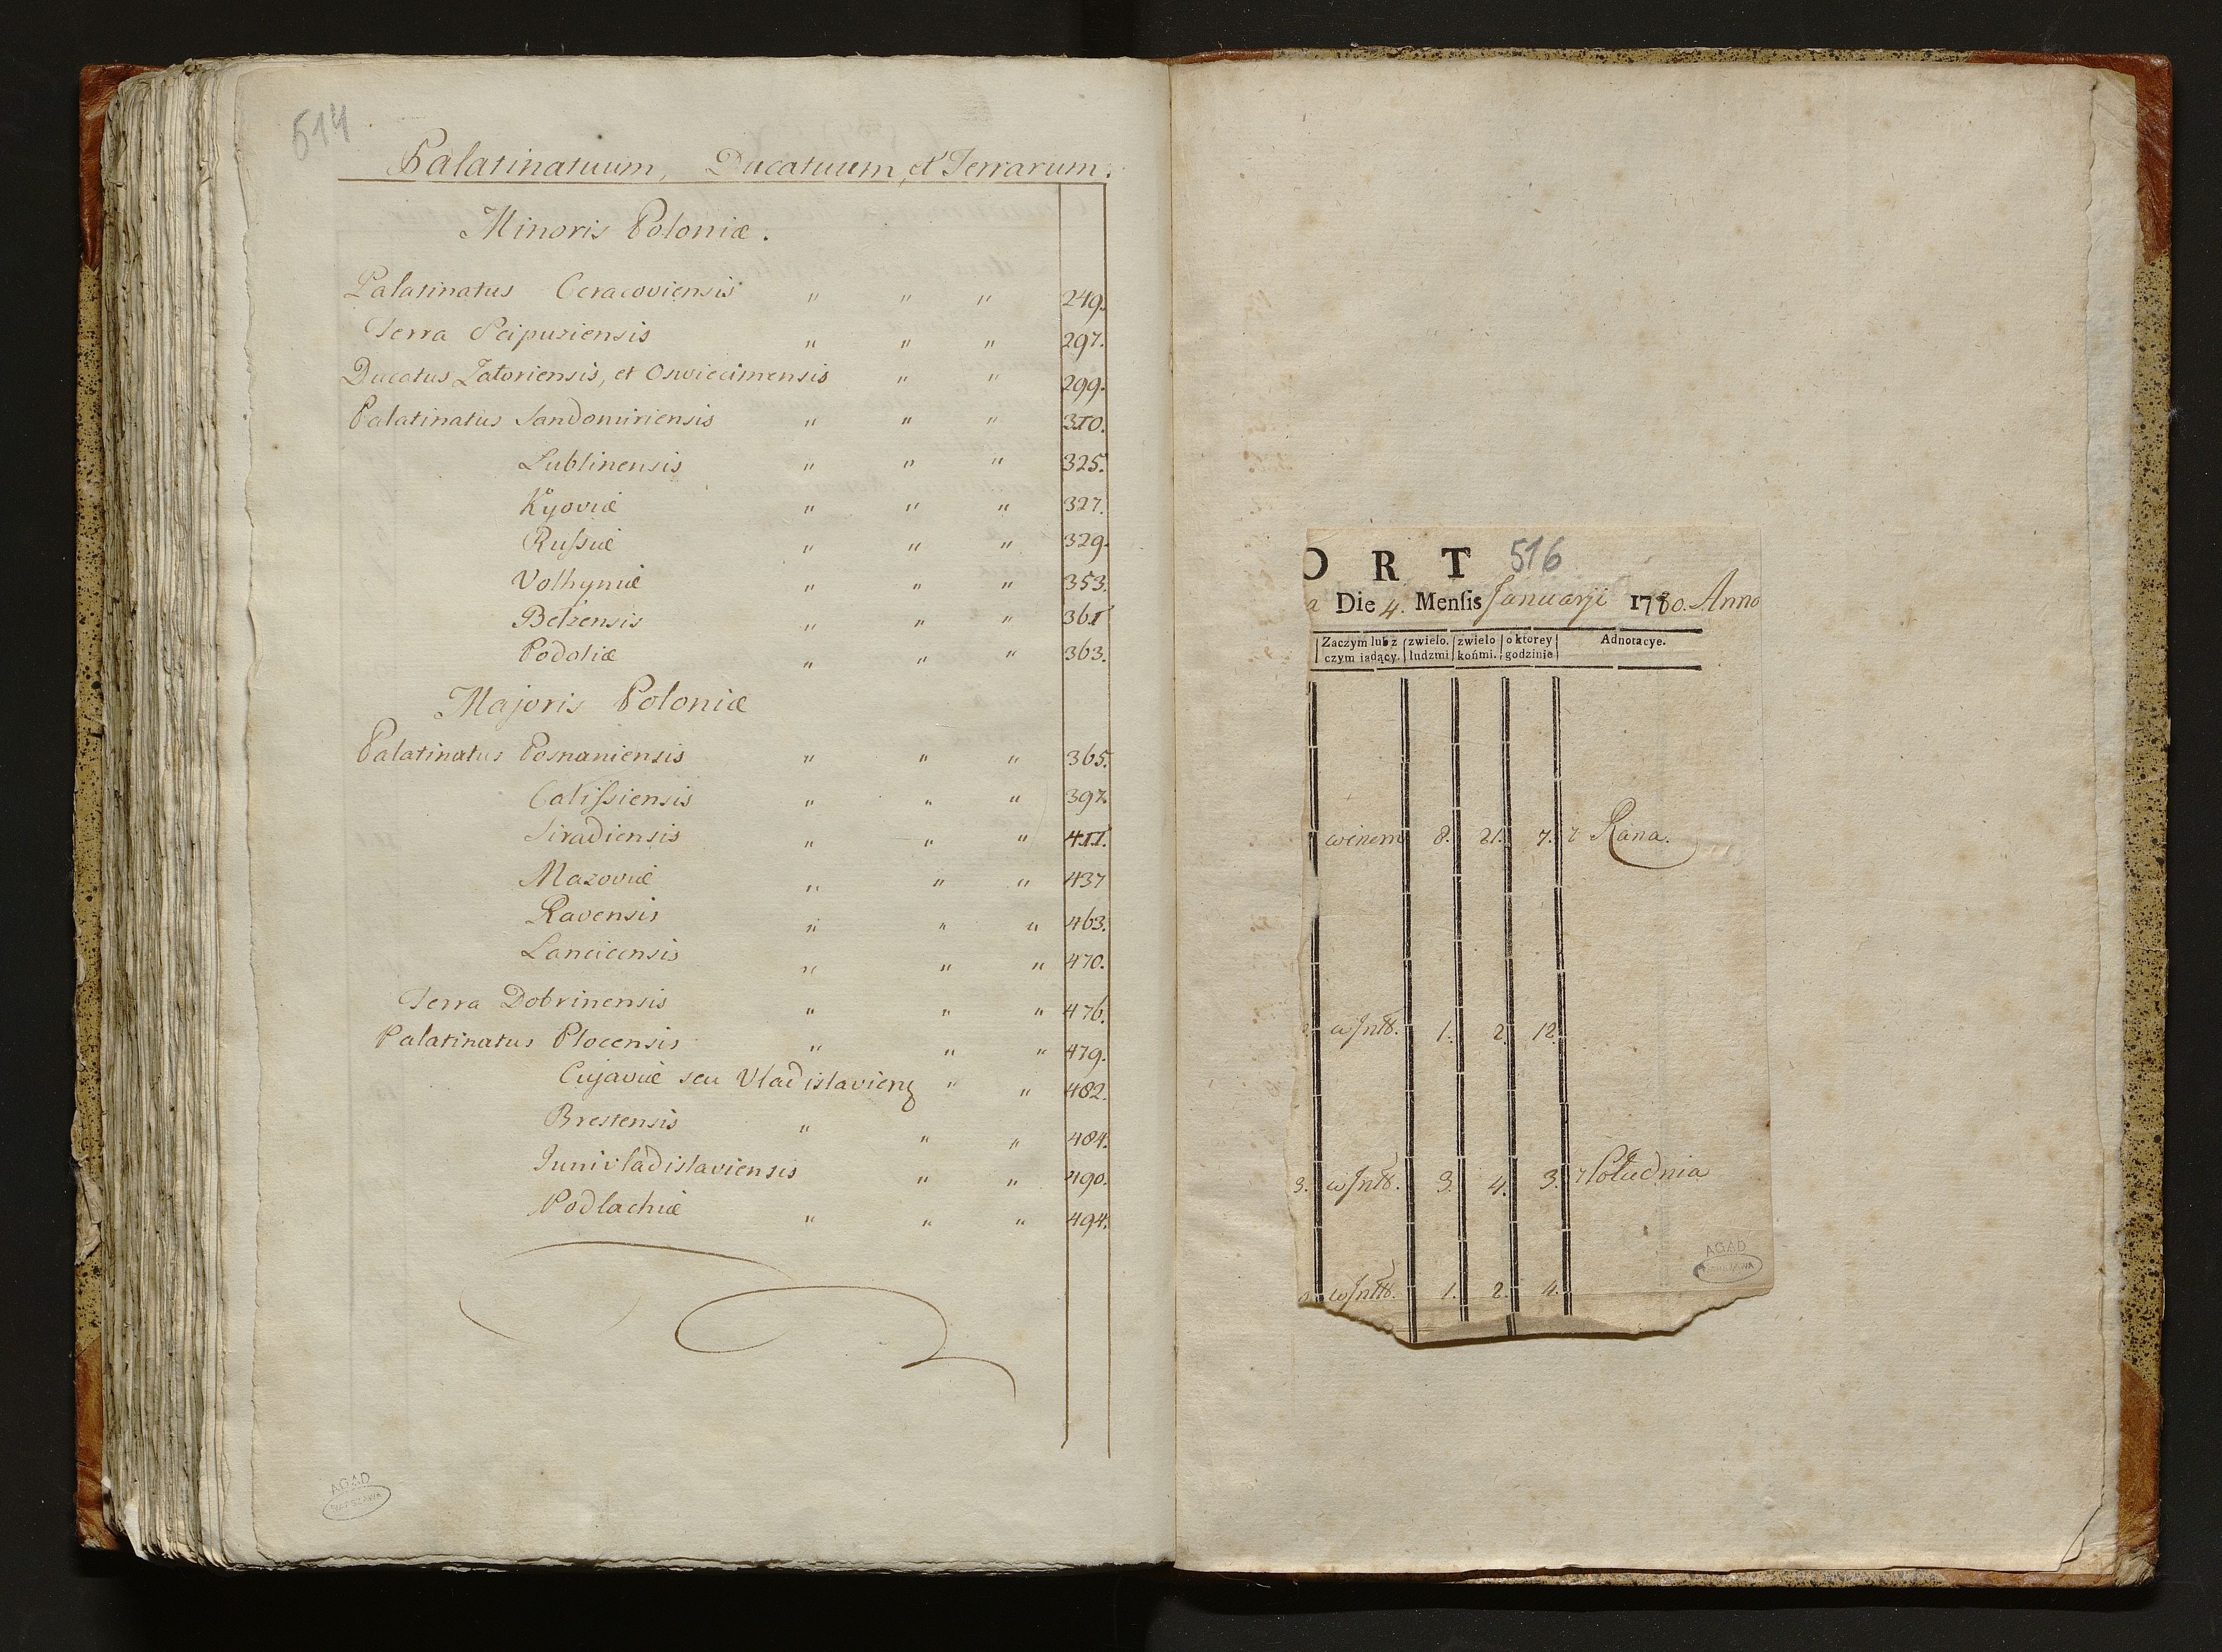 514
Palatinatuum, Ducatuum, et Terrarum.
Minoris Poloniæ.
Palatinatus Ceracoviensis " " " 249.
Terra Scipusiensis " " " 297.
Ducatus Zatoriensis, et Oswiecimensis " " 299.
Palatinatus Sandomiriensis " " " 310.
Lublinensis " " " 325.
Kyoviæ " " " 327.
Rußiæ " " " 329.
Volhyniæ " " " 353.
Belzensis " " " 361
Podoliæ " " " 363.
Majoris Poloniæ
Palatinatus Posnaniensis " " " 365.
Calißiensis " " " 397.
Siradiensis " " " 411.
Mazoviæ " " " 437
Ravensis " " " 463.
Lancicensis " " " 470.
Terra Dobrinensis " " " 476.
Palatinatus Plocensis " " " 479.
Cujaviæ seu Vladislaviens " " 482.
Brestensis " " " 484.
Junivladislaviensis " " 490.
Podlachiæ " " " 494.
AGAD
WARSZAWA
ORT 516
a Die 4. Menſis Januarji 1780. Anno
Zaczym lub z czym iadący. zwielo. ludzmi zwielo końmi. o ktorey godzinie Adnotacye.
winem 8. 21. 7. z Rana.
w Jntt. 1. 2. 12.
3. w Jntt. 3. 4. 3. z Południa
w Jntt. 1. 2. 4.
AGAD
WARSZAWA